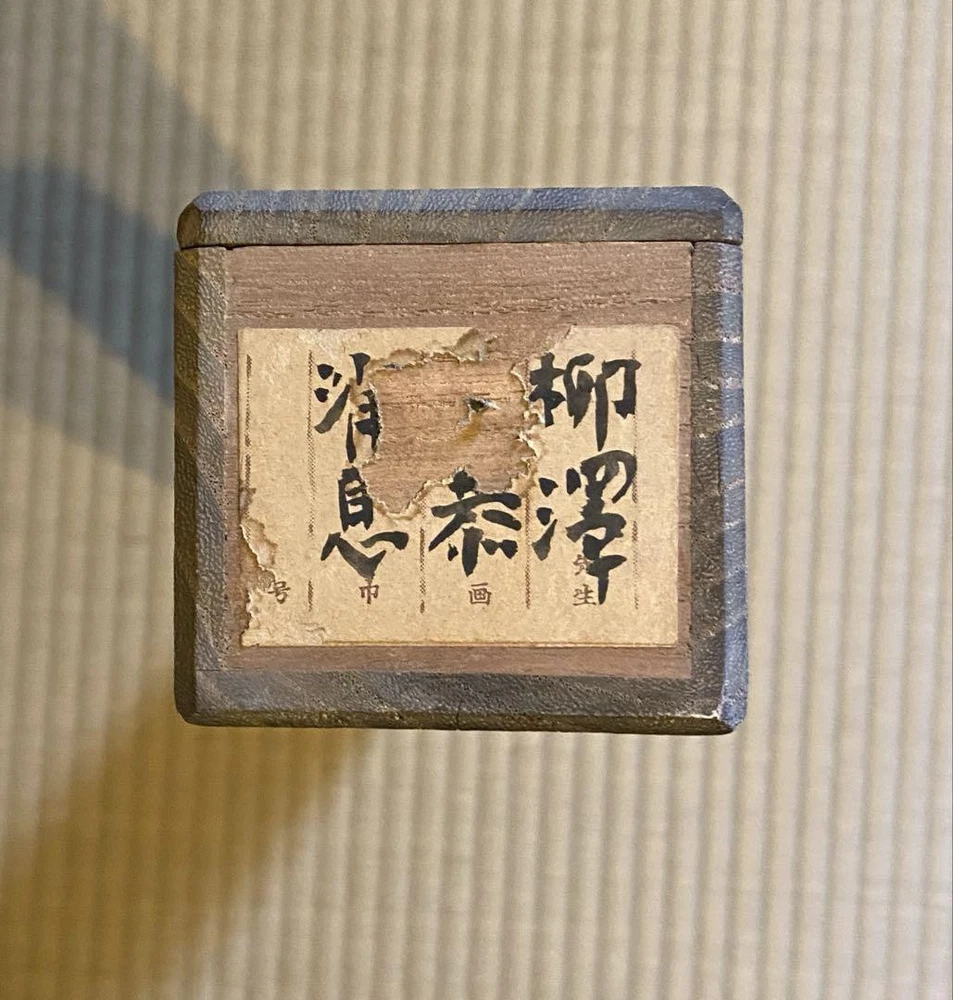 柳澤
先生
恭
画
消息
巾
号